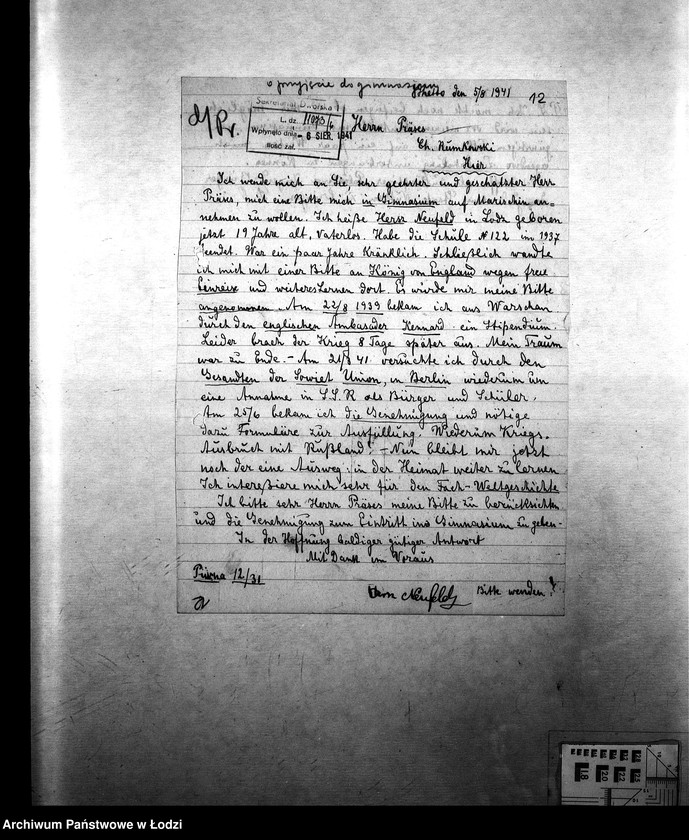 o przyjęcie do gimnazjum
Ghetto den 5/8 1941
12
d/Pr.
Sekretariat Dworska 1
L. dz. 11073/6
Wpłynęło dnia - 6 SIER. 1941
Ilość zał.
Herrn Präses
Ch. Rumkowski
Hier
Ich wende mich an Sie, sehr geehrter und geschätzter Herr
Präses, mich eine Bitte mich in Gimnasium auf Marischin an-
nehmen zu wollen. Ich heiße Neufeld in Lodz geboren
jetzt 19 Jahre alt, Vaterlos. Habe die Schüle № 122 im 1937
beendet. War ein paar Jahre Kränklich. Schließlich wandte
ich mich mit einer Bitte an König von England wegen freie
Einreise und weiteres Lernen dort. Es würde mir meine Bitte
angenommen. Am 22/8 1939 bekam ich aus Warschau
durch den englischen Ambasador Kennard ein Stipendium.
Leider brach der Krieg 8 Tage später aus. Mein Traum
war zu Ende. - Am 41 versuchte ich durch den
Gesandten der Sowiet Union, in Berlin wiederüm um
eine Annahme in S.S.R als Bürger und Schüler.
Am 25/6 bekam ich die Genehmigung und nötige
dazu Formuläre zur Ausfüllung. Wiederüm Kriegs-
Ausbruch mit Rußland! - Nun bleibt mir jetzt
noch der eine Ausweg: in der Heimat weiter zu lernen
Ich interessiere mich sehr für den Fach - Weltgeschichte
Ich bitte sehr Herrn Präses meine Bitte zu berücksichten
und die Genehmigung zum Eintritt ins Gimnasium zu geben -
In der Hoffnung baldiger gütiger Antwort
Mit Dank im Voraus
12/31
Neufeld
Bitte wenden!
Archiwum Państwowe w Łodzi